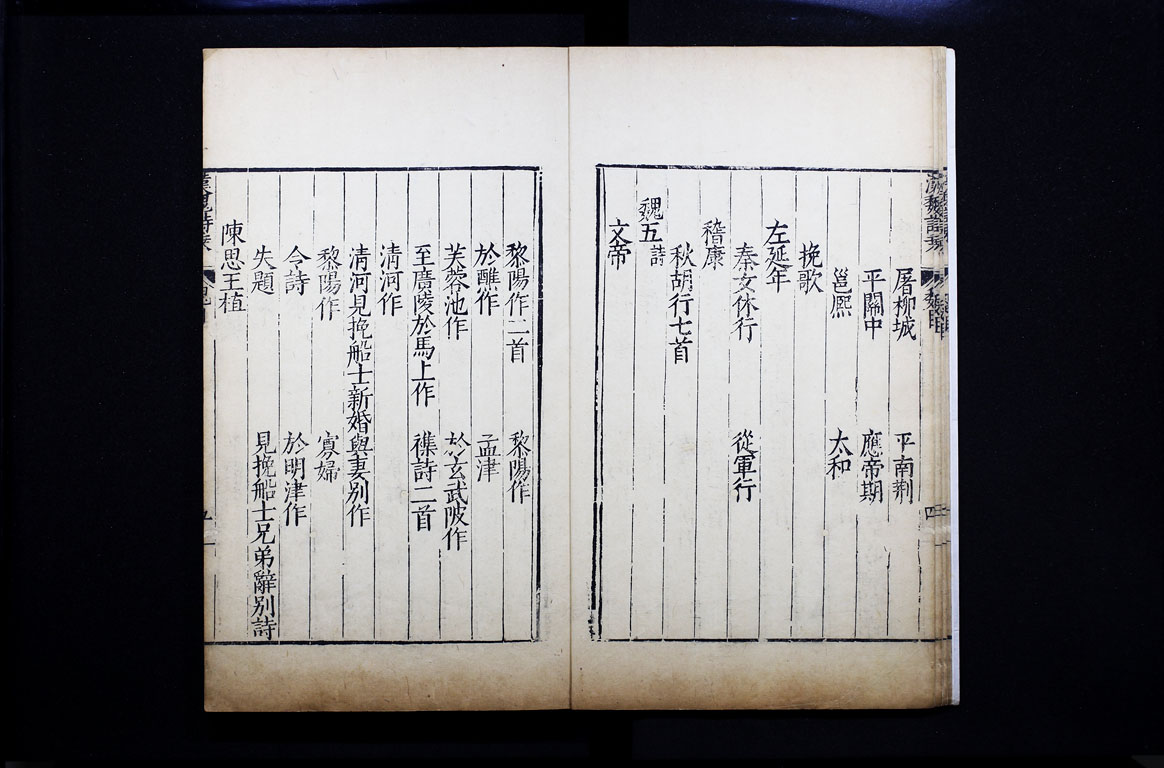 屠柳城 平南荆
平關中 應帝期
邕熈 太和
挽歌
左延年
秦女休行 從軍行
嵇康
秋胡行七首
魏五 詩
文帝
黎陽作二首 黎陽作
於譙作 孟津
芙蓉池作 於玄武陂作
至廣陵於馬上作 襍詩二首
清河作
清河見挽船士新婚與妻別作
黎陽作 寡婦
令詩 於明津作
失題 見挽船士兄弟辭別詩
陳思王植